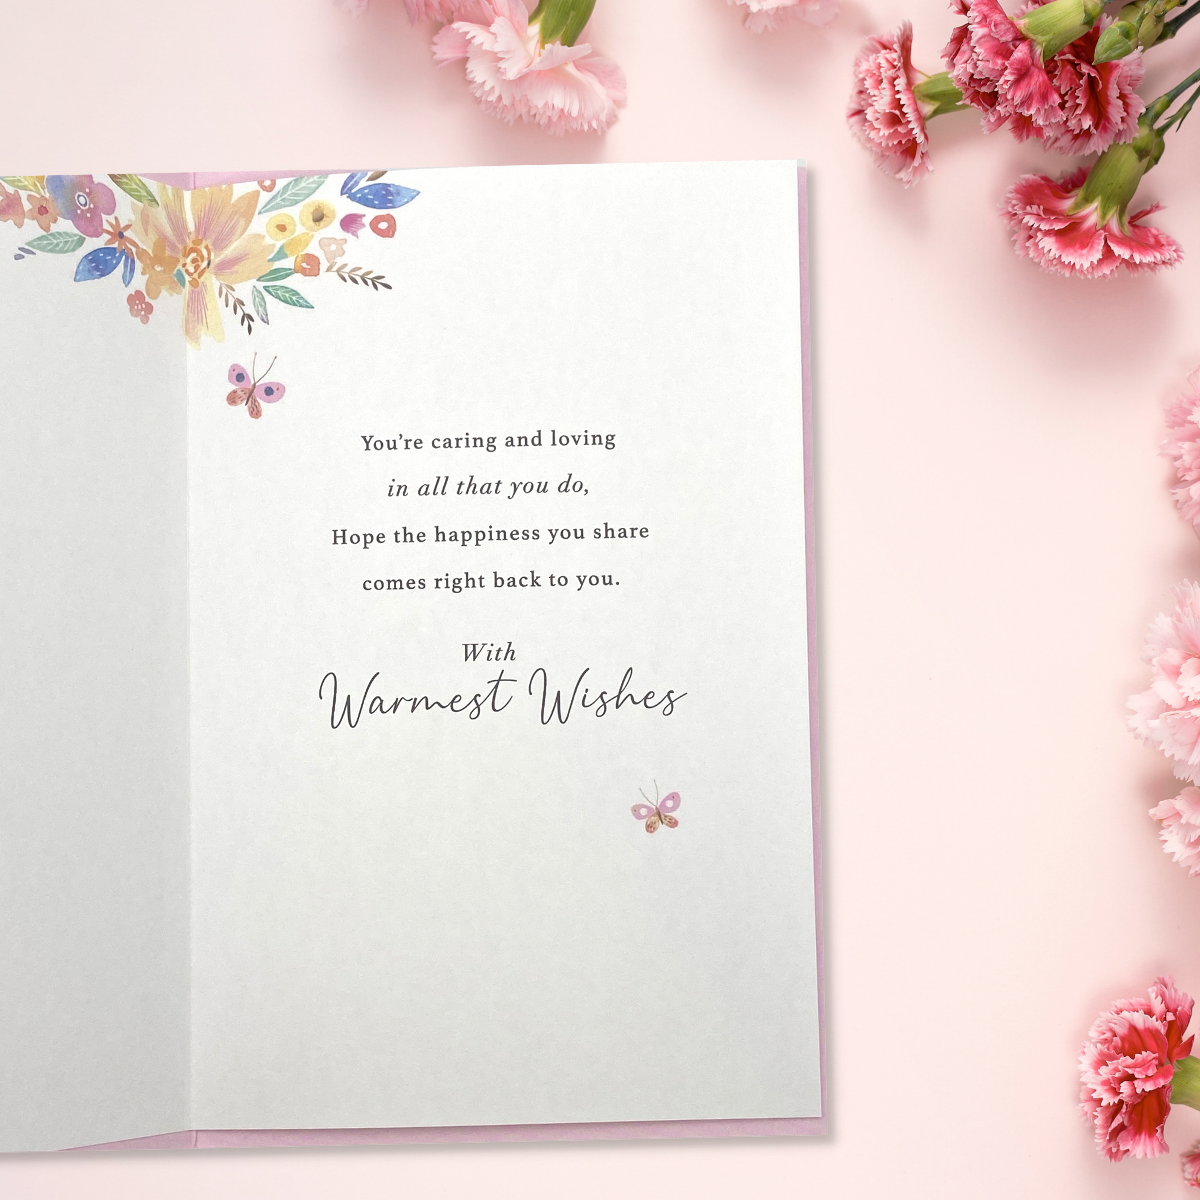 You’re caring and loving
in all that you do,
Hope the happiness you share
comes right back to you.
With
Warmest Wishes